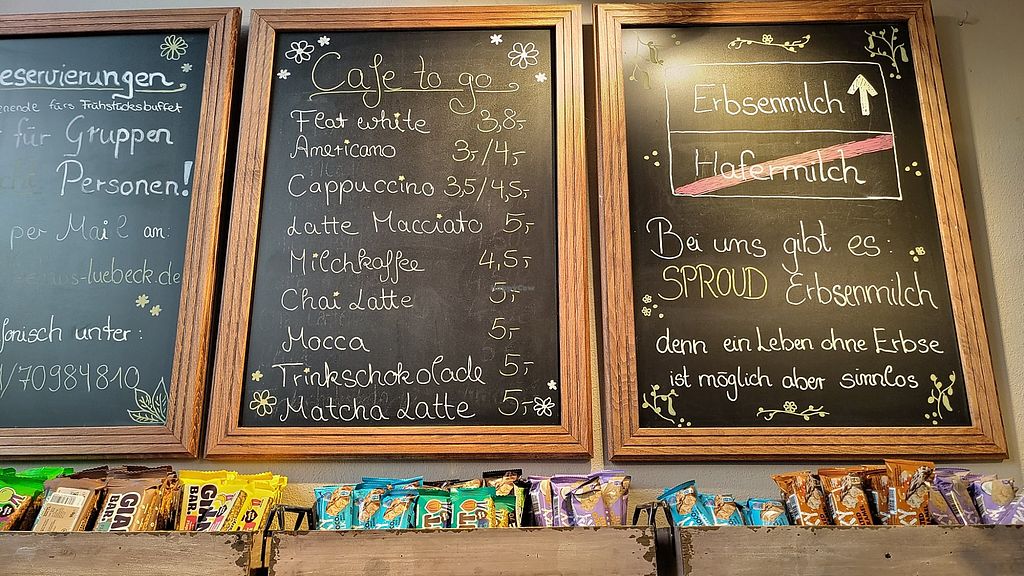 eservierungen
enende fürs Frühstücksbuffet
für Gruppen
Personen!
per Mail an:
-luebeck.de
fonisch unter:
1/70984810
Cafe to go
Flat white 3,8,-
Americano 3,-/4,-
Cappuccino 3,5/4,5,-
Latte Macciato 5,-
Milchkaffee 4,5,-
Chai Latte 5,-
Mocca 5,-
Trinkschokolade 5,-
Matcha Latte 5,-
Erbsenmilch ↑
Hafermilch
Bei uns gibt es:
SPROUD Erbsenmilch
denn ein Leben ohne Erbse
ist möglich aber sinnlos